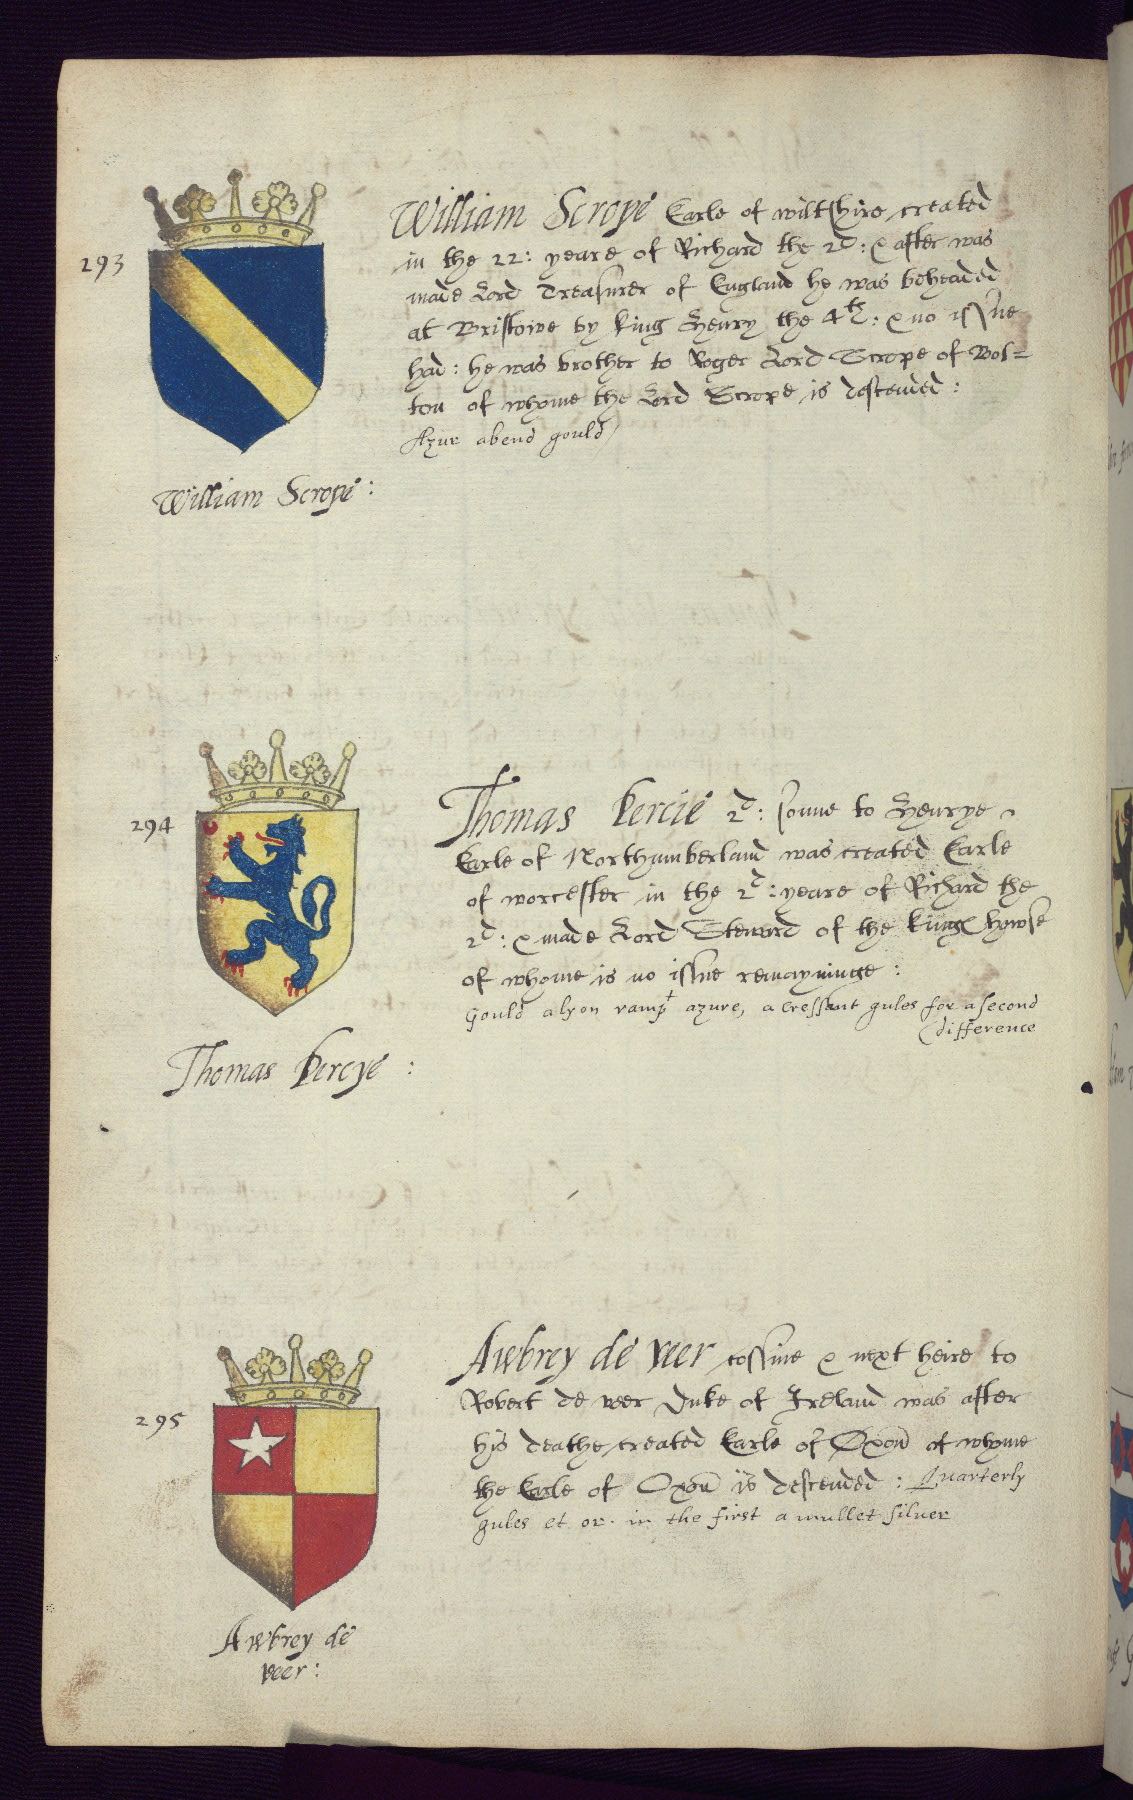 293
William Scrope Earle of wiltshire, created
in the 22: yeare of Richard the 2d: & after was
made Lord Treasurer of England he was beheaded
at Bristowe by king Henry the 4th: & no issue
had: he was brother to Roger Lord Scrope of Bol=
ton of whome the Lord Scrope is descended:
Azur abend gould
William Scrope:
294
Thomas Percie 2d: sonne to Henrye
Earle of Northumberland was created Earle
of worcester in the 2d: yeare of Richard the
2d: & made Lord Steward of the kings howse
of whome is no issue remayninge:
Gould a lyon rampt azure, a cressant gules for a second
difference
Thomas Percye:
295
Awbrey de veer cossine & next heire to
Robert de veer Duke of Ireland was after
his deathe, created Earle of Oxon of whome
the Earle of Oxon is descended: Quarterly
gules et or. in the first a mullet silver
Awbrey de
veer: